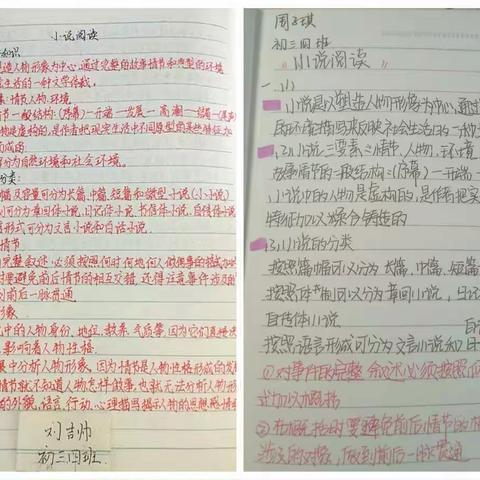 小说阅读
知识
造人物形象为中心,通过完整的故事情节和典型的环境
生活的一种文学体裁。
情节 人物 环境
节一般结构:(序幕)一开端一发展一高潮一结局一(尾声)
物是虚构的,是作者把现实生活中不同原型的
而成的
分为自然环境和社会环境。
分类:
幅及容量可分为长篇、中篇、短篇和微型小说(小小说)
可分为章回体小说、日记体小说、书信体小说、自传体小说
形式可分为文言小说和白话小说。
情节
完整叙述,必须按照何时何地何人做何事的
时要避免前后情节的相互交错,还得注意事件涉及的
到前后一脉贯通
形象
中的人物身份、地位、教养、气质等,因为它们直接
,影响着人物性格。
展中分析人物形象,因为情节是人物性格形成的
情节就不知道人物怎样做事,也就无法分析人物形
的外貌、语言、行动、心理描写揭示人物的思想感情
刘吉帅
初三四班
周子琪
初三四班
小说阅读
一、小
小说是以塑造人物形象为中心,通过
和环境描写来反映社会生活的一种
(2)小说三要素:情节、人物、环境
故事情节的一般结构:(序幕)一开端一
小说中的人物是虚构的,是作者把现实
特征加以糅合铸造的
(3)小说的分类
按照篇幅可以分为长篇、中篇、短篇
按照体制可以分为章回小说,日记
自传体小说
按照语言形式可分为文言小说和白
①对事件的完整叙述,必须按照何
加以概括
②在概括时要避免前后情节的相
涉及的对象,做到前后一脉贯通